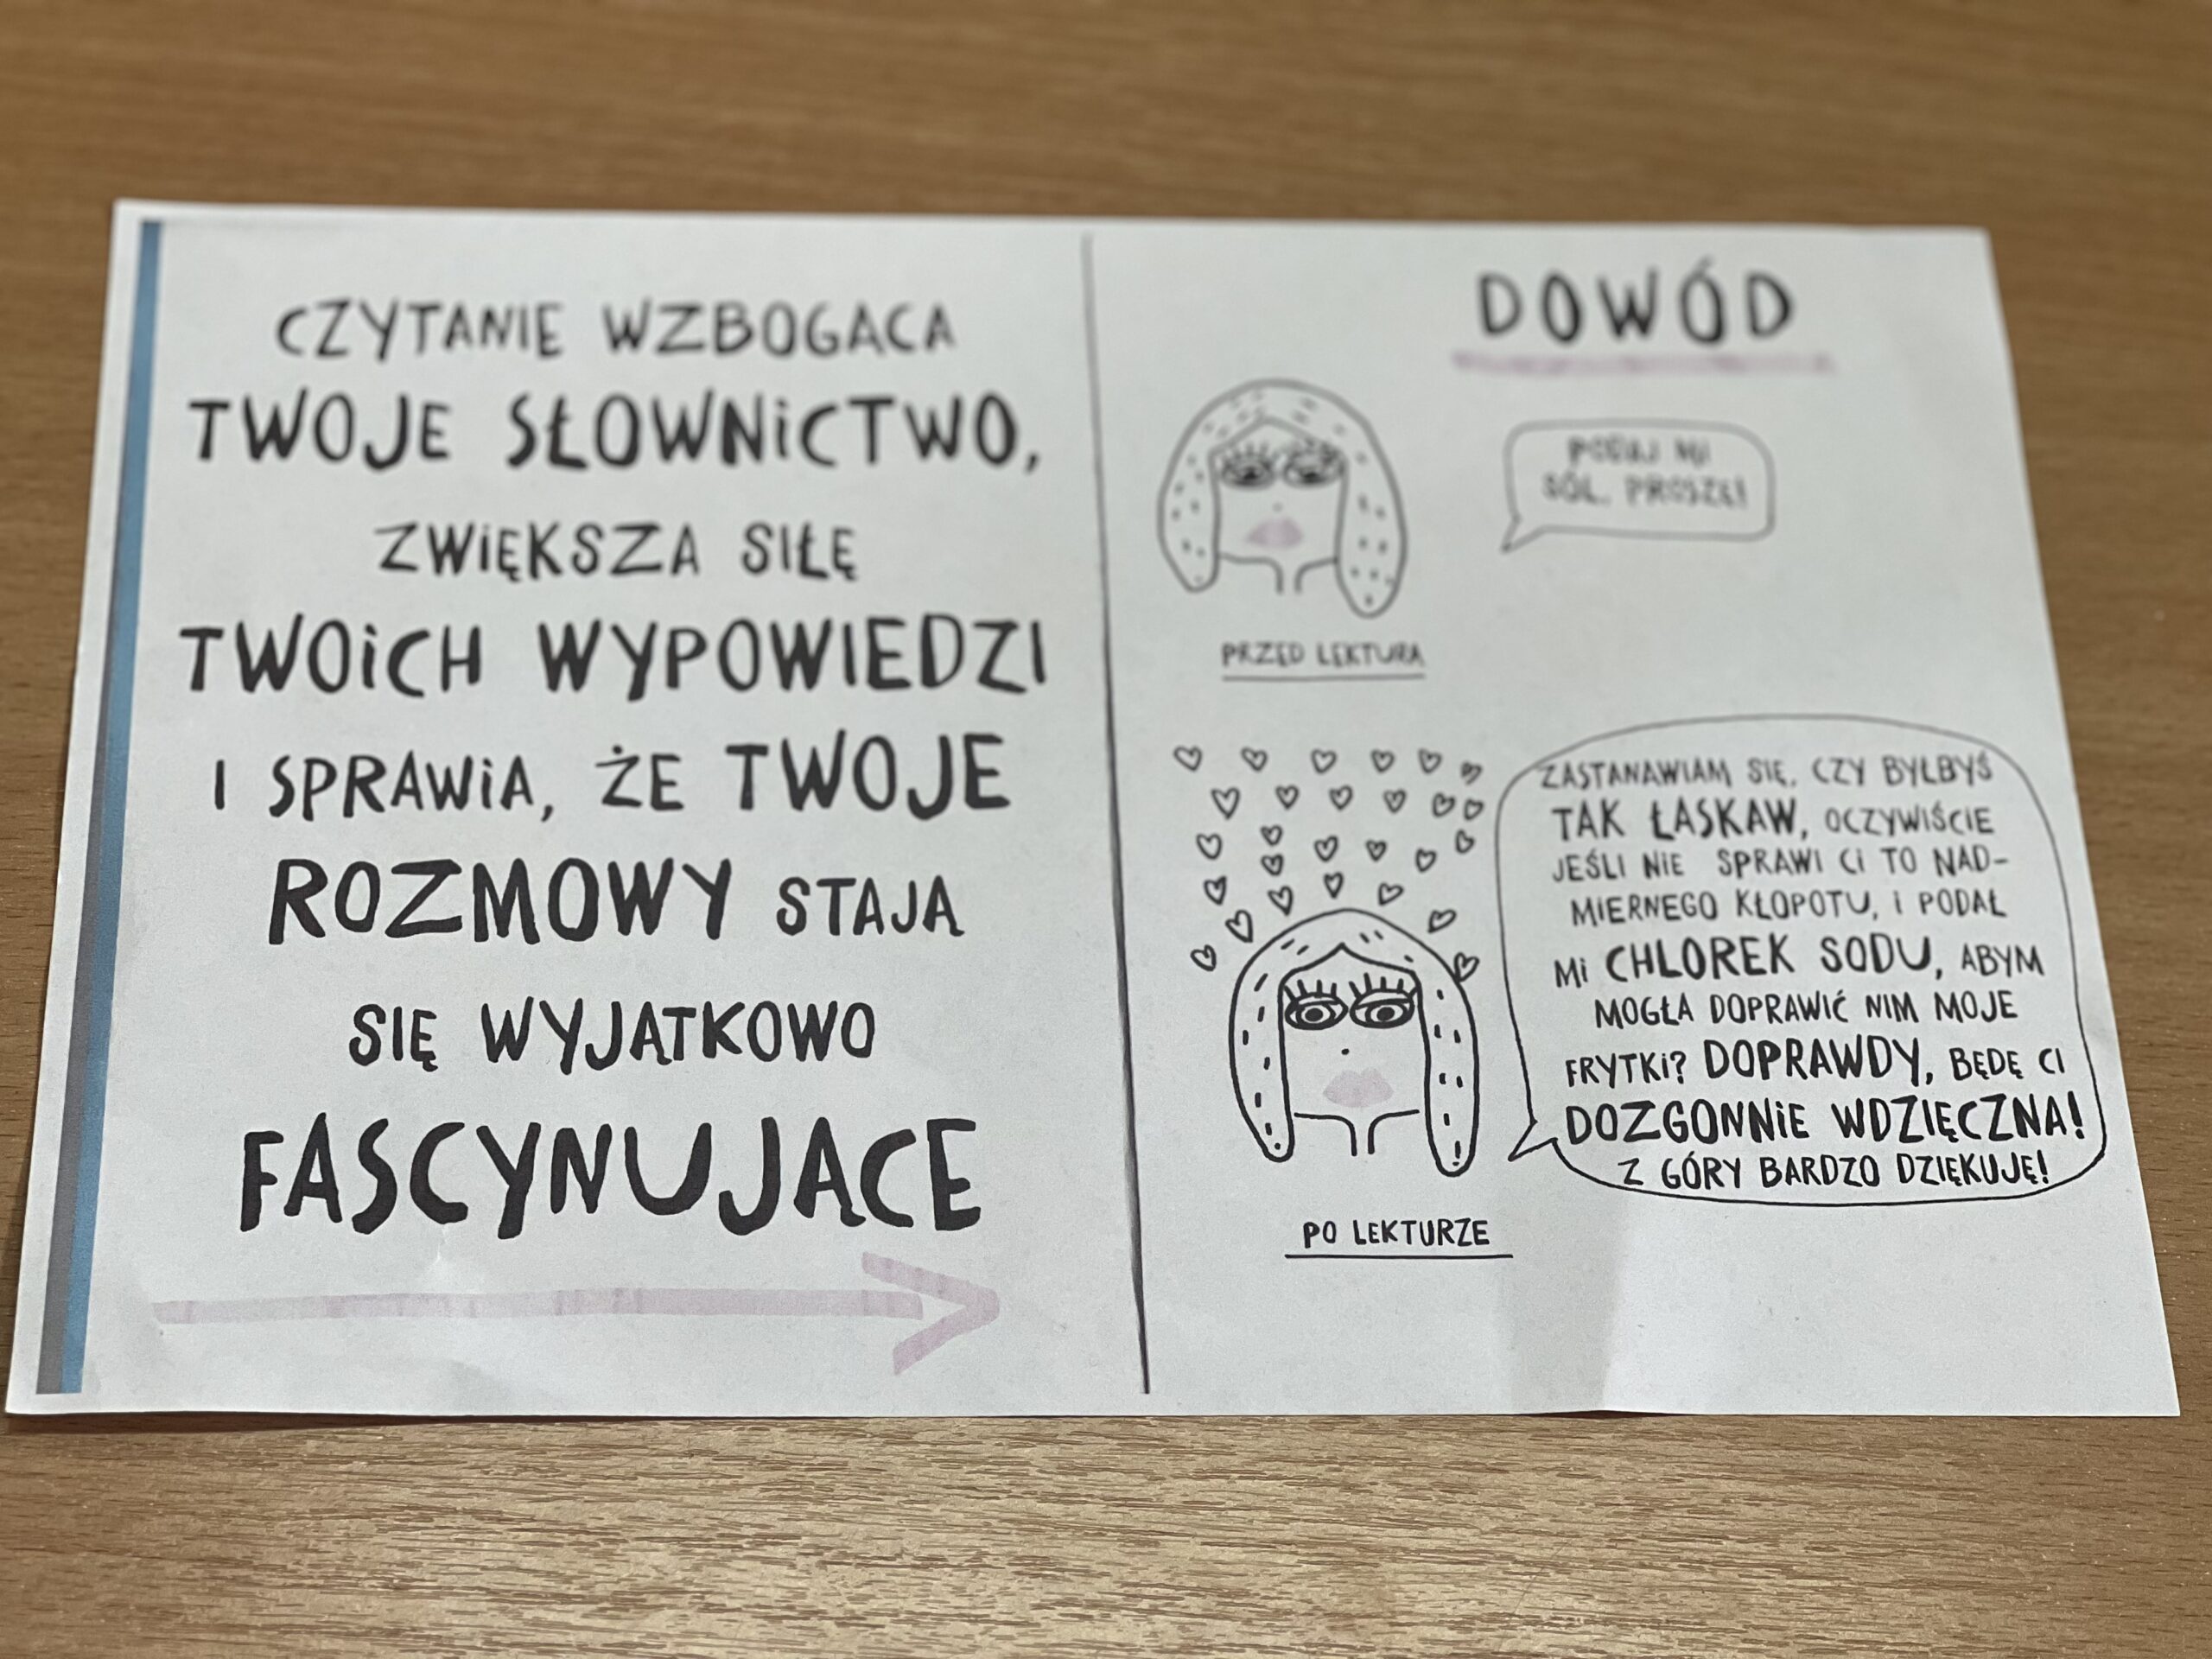 CZYTANIE WZBOGACA
TWOJE SŁOWNiCTWO,
ZWiĘKSZA SIŁĘ
TWOiCH WYPOWIEDZI
I SPRAWiA, ŻE TWOJE
ROZMOWY STAJĄ
SIĘ WYJĄTKOWO
FASCYNUJĄCE
DOWÓD
PODAJ MI
SÓL, PROSZĘ!
PRZED LEKTURĄ
ZASTANAWIAM SIĘ, CZY BYŁBYŚ
TAK ŁASKAW, OCZYWIŚCIE
JEŚLI NiE SPRAWI Ci TO NAD-
MIERNEGO KŁOPOTU, i PODAŁ
Mi CHLOREK SODU, ABYM
MOGŁA DOPRAWIĆ NIM MOJE
FRYTKi? DOPRAWDY, BĘDĘ CI
DOZGONNiE WDZIĘCZNA!
Z GÓRY BARDZO DZIĘKUJĘ!
PO LEKTURZE